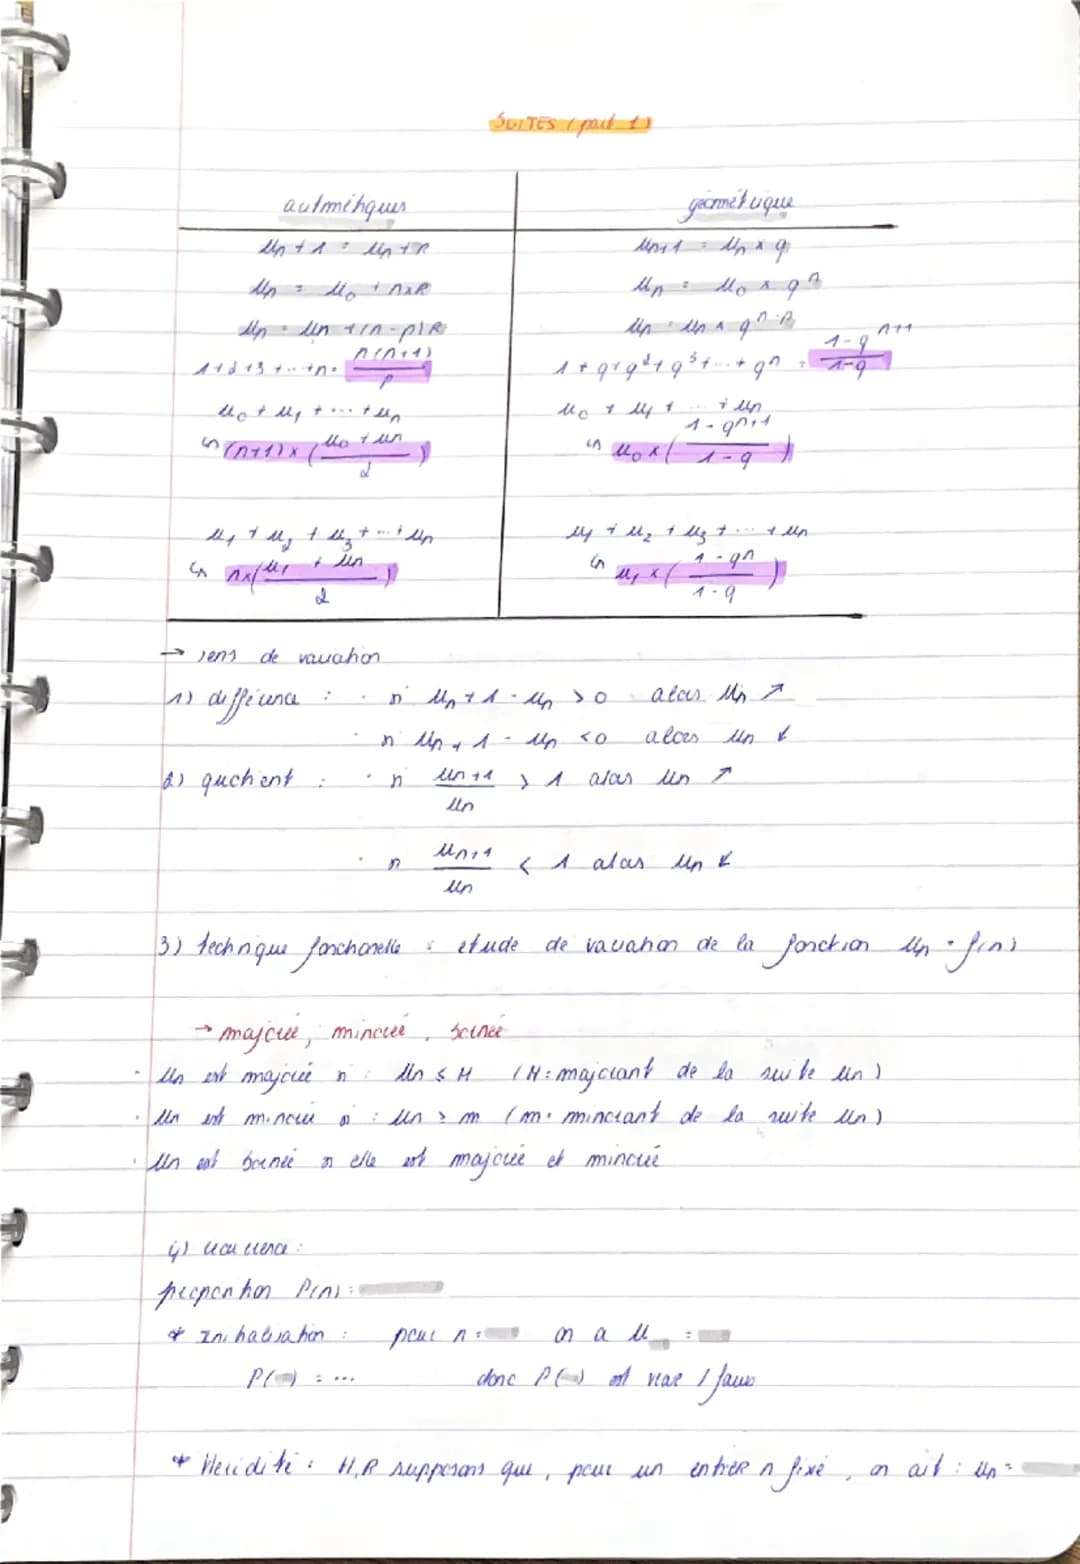 SUITES (part 1)
arithmétiques
géométrique
Un+1 = Un+R
Un+1 = Un x q
Un = U0 + nxR
Un = U0 x q^n
Un = Up +(n-p)R
Un = Up x q^n-p
1+2+3+...+n = n(n+1)/2
1+q+q^2+q^3+...+q^n = 1-q^n+1/1-q
U0 + U1 + ... + Un
U0 + U1 + ... + Un
↳ (n+1) x (U0 + Un/2)
↳ U0 x (1-q^n+1/1-q)
U1 + U2 + U3 + ... + Un
U1 + U2 + U3 + ... + Un
↳ nx(U1 + Un/2)
↳ U1 x (1-q^n/1-q)
→ sens de variation
1) différence : · si Un+1 - Un > 0 alors Un ↗
· si Un+1 - Un < 0 alors Un ↙
2) quotient : · si Un+1/Un > 1 alors Un ↗
· si Un+1/Un < 1 alors Un ↙
3) technique fonctionelle : etude de variation de la fonction Un = f(n)
→ majorée, minorée, bornée
· Un est majorée si : Un ≤ M (M: majorant de la suite Un)
· Un est minorée si : Un ≥ m (m: minorant de la suite Un)
· Un est bornée si elle est majorée et minorée
4) récurrence :
proposition P(n) :
* Initialisation : pour n = on a U =
P( ) = ... donc P( ) est vraie / fausse
* Hérédité : H.R supposons que, pour un entier n fixé, on ait : Un =